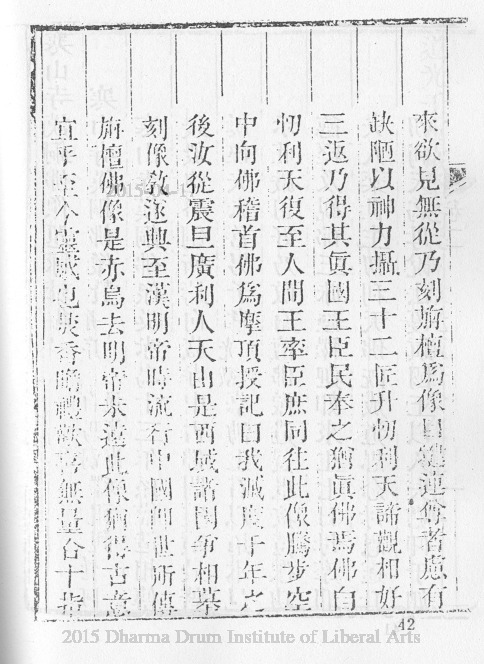 來欲見無從乃刻旃檀爲像目犍連尊者慮有
缺陋以神力攝三十二匠升忉利天諦觀相好
三返乃得其眞國王臣民奉之猶眞佛焉佛自
忉利天復至人間王率臣庶同往此像騰步空
中向佛稽首佛爲摩頂授記曰我滅度千年之
後汝從震旦廣利人天由是西域諸國爭相摹
刻像敎遂興至漢明帝時流行中國卽世所傳
旃檀佛像是赤烏去明帝未遠此像猶得古意
宜乎至今靈感也焚香瞻禮歡喜無量合十
42
2015 Dharma Drum Institute of Liberal Arts